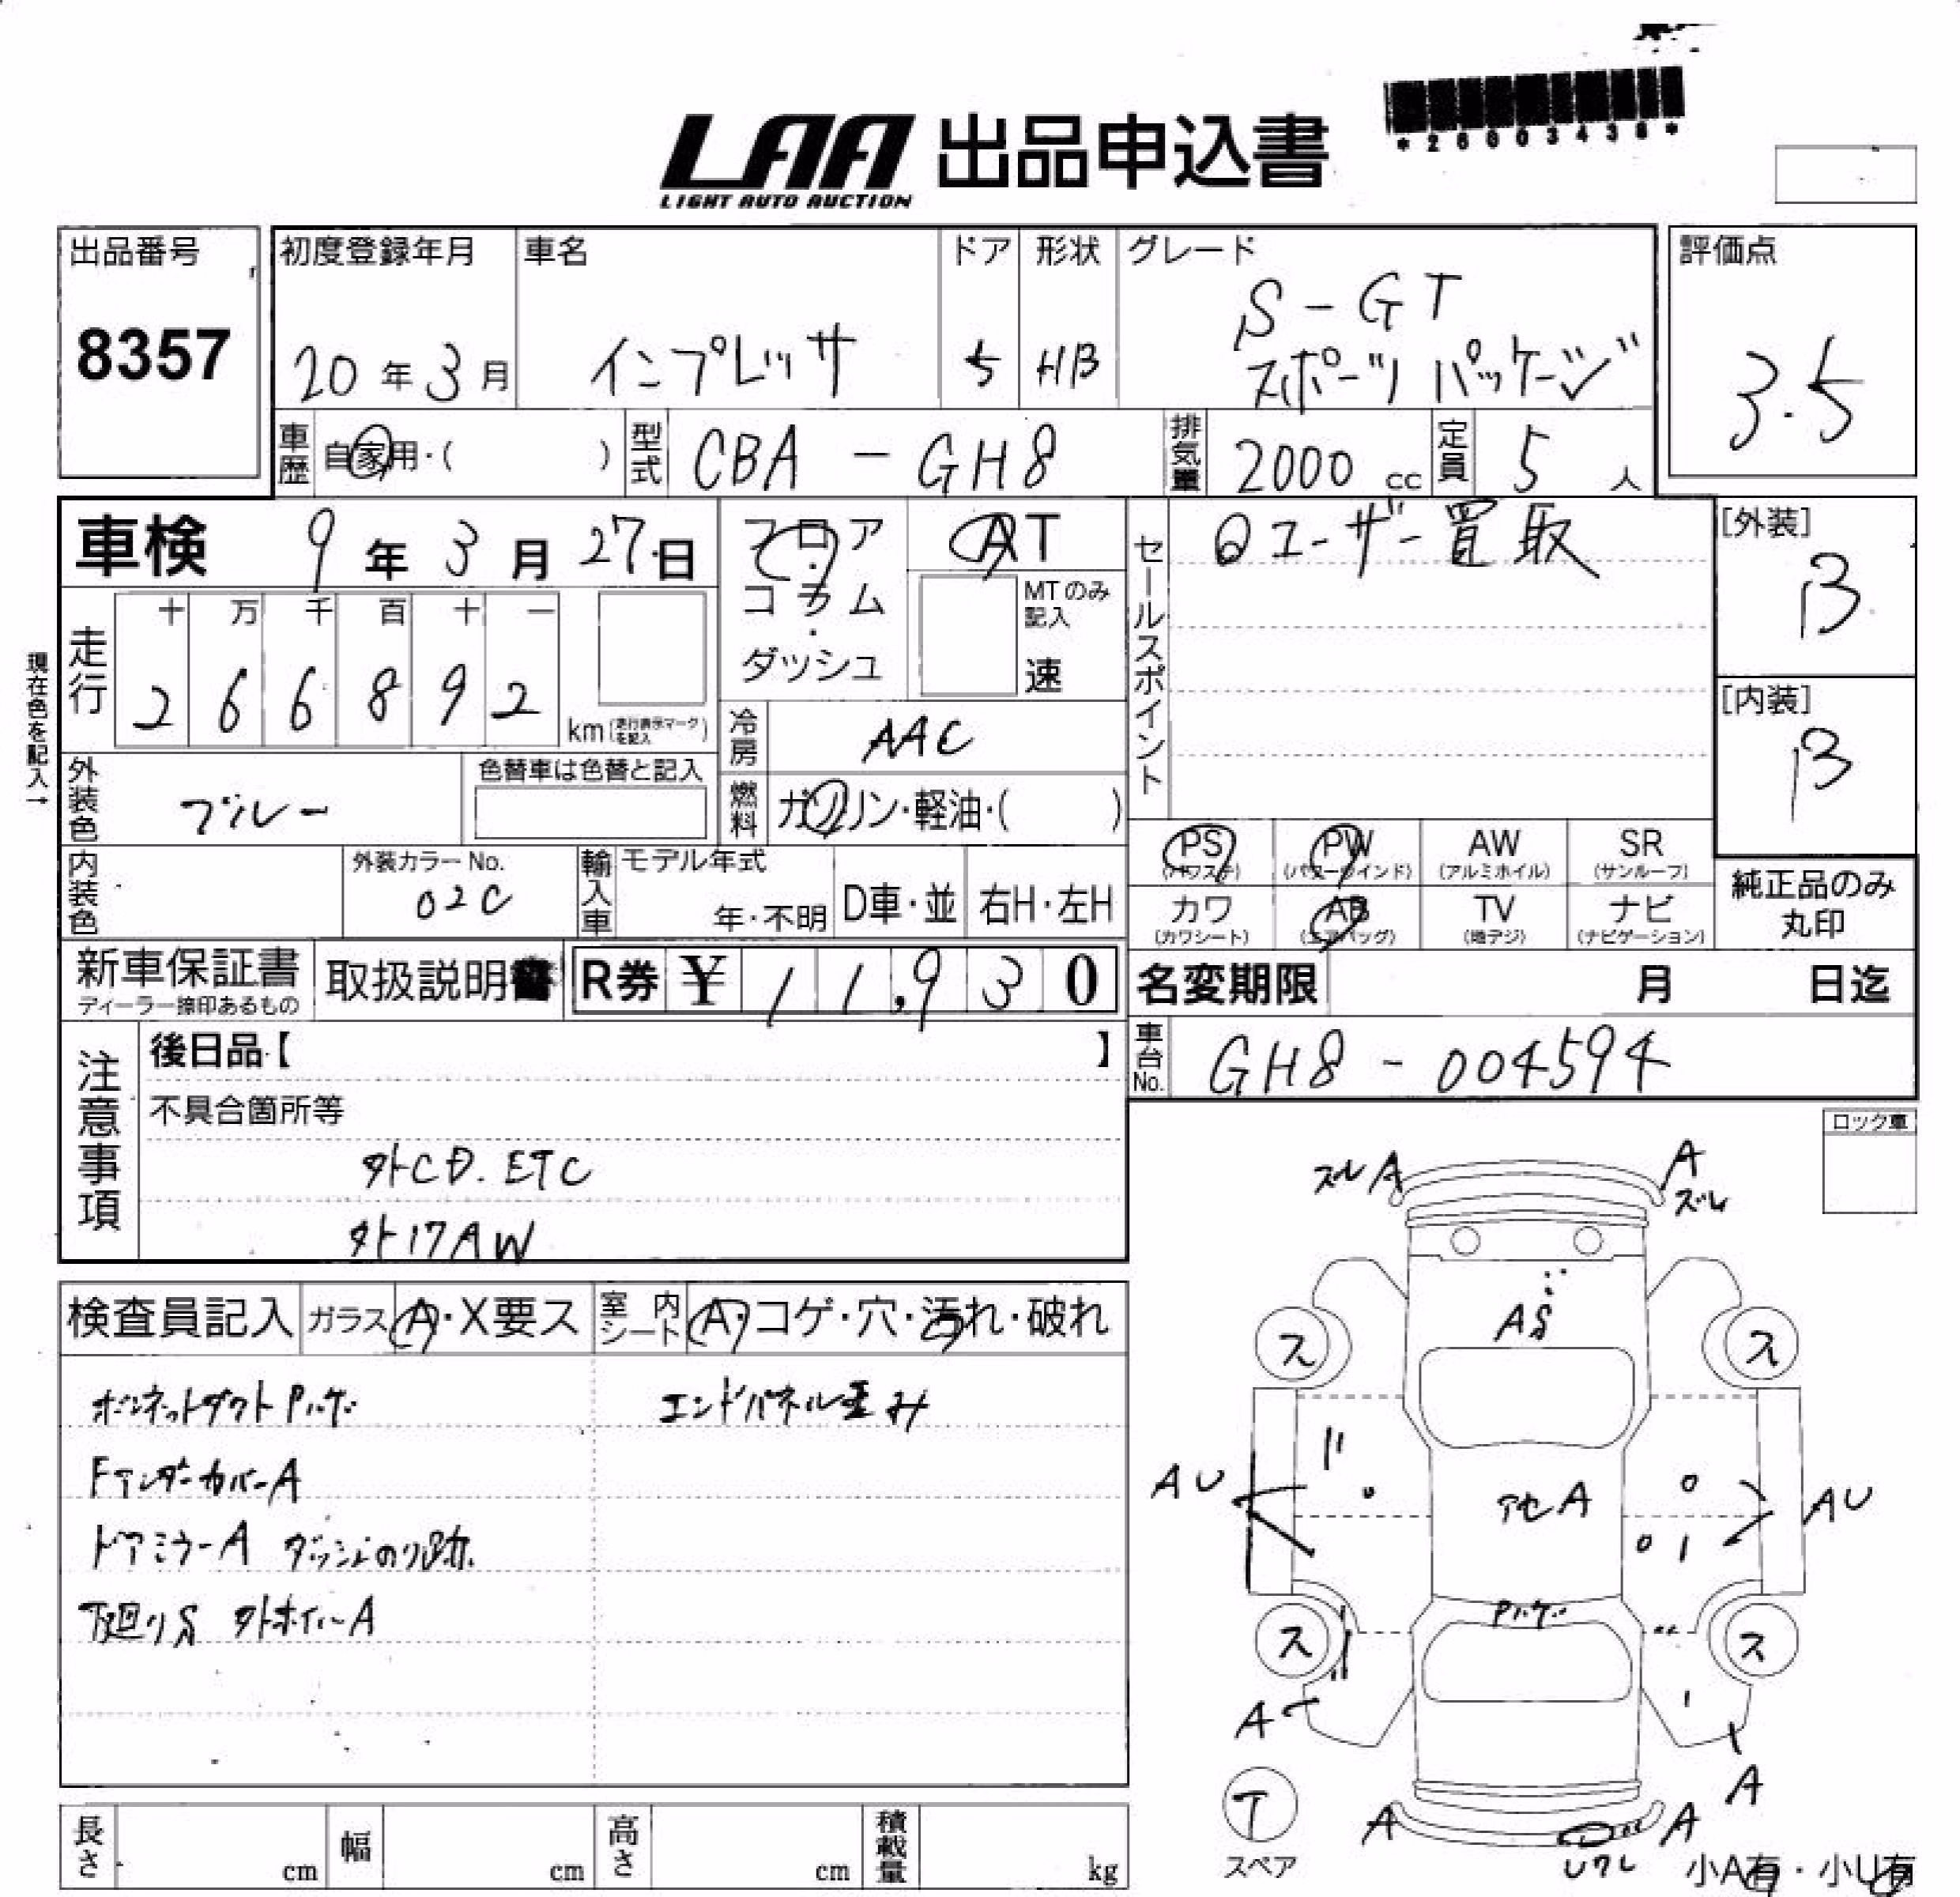 LAA 出品申込書
LIGHT AUTO AUCTION
出品番号
8357
初度登録年月
20年3月
車名
インプレッサ
ドア
5
形状
HB
グレード
S-GT
スポーツパッケージ
評価点
3.5
車歴
自家用・( )
型式
CBA - GH8
排気量
2000 cc
定員
5人
車検 9年3月27日
フロア
・
コラム
・
ダッシュ
AT
MTのみ
記入
速
セールスポイント
ユーザー買取
[外装]
B
[内装]
B
現在色を記入→
走行
十 万 千 百 十 一
2 6 6 8 9 2
km(走行表示マークを記入)
冷房
AAC
外装色
ブルー
色替車は色替と記入
燃料
ガソリン・軽油・( )
PS PW AW SR
(パワステ) (パワーウインド) (アルミホイル) (サンルーフ)
カワ AB TV ナビ
(カワシート) (エアバッグ) (地デジ) (ナビゲーション)
純正品のみ
丸印
内装色
外装カラーNo.
02C
輸入車
モデル年式
年・不明
D車・並
右H・左H
新車保証書
ディーラー捺印あるもの
取扱説明書
R券 ¥ 11,930
名変期限 月 日迄
車台No.
GH8 - 004594
注意事項
後日品【 】
不具合箇所等
外CD. ETC
外17AW
ロック車
検査員記入
ガラス A・X要ス
室内シート A・コゲ・穴・汚れ・破れ
ボンネットダクトPハゲ
エンドパネル歪み
FアンダーカバーA
ドアミラーA ダッシュのり跡
下廻りS 外ホイールA
ズレ A
A ズレ
AS
ス
ス
AU
アセA
AU
Pハゲ
ス
ス
A
A
T
スペア
A
A
Uワレ
小A有・小U有
長さ cm
幅 cm
高さ cm
積載量 kg